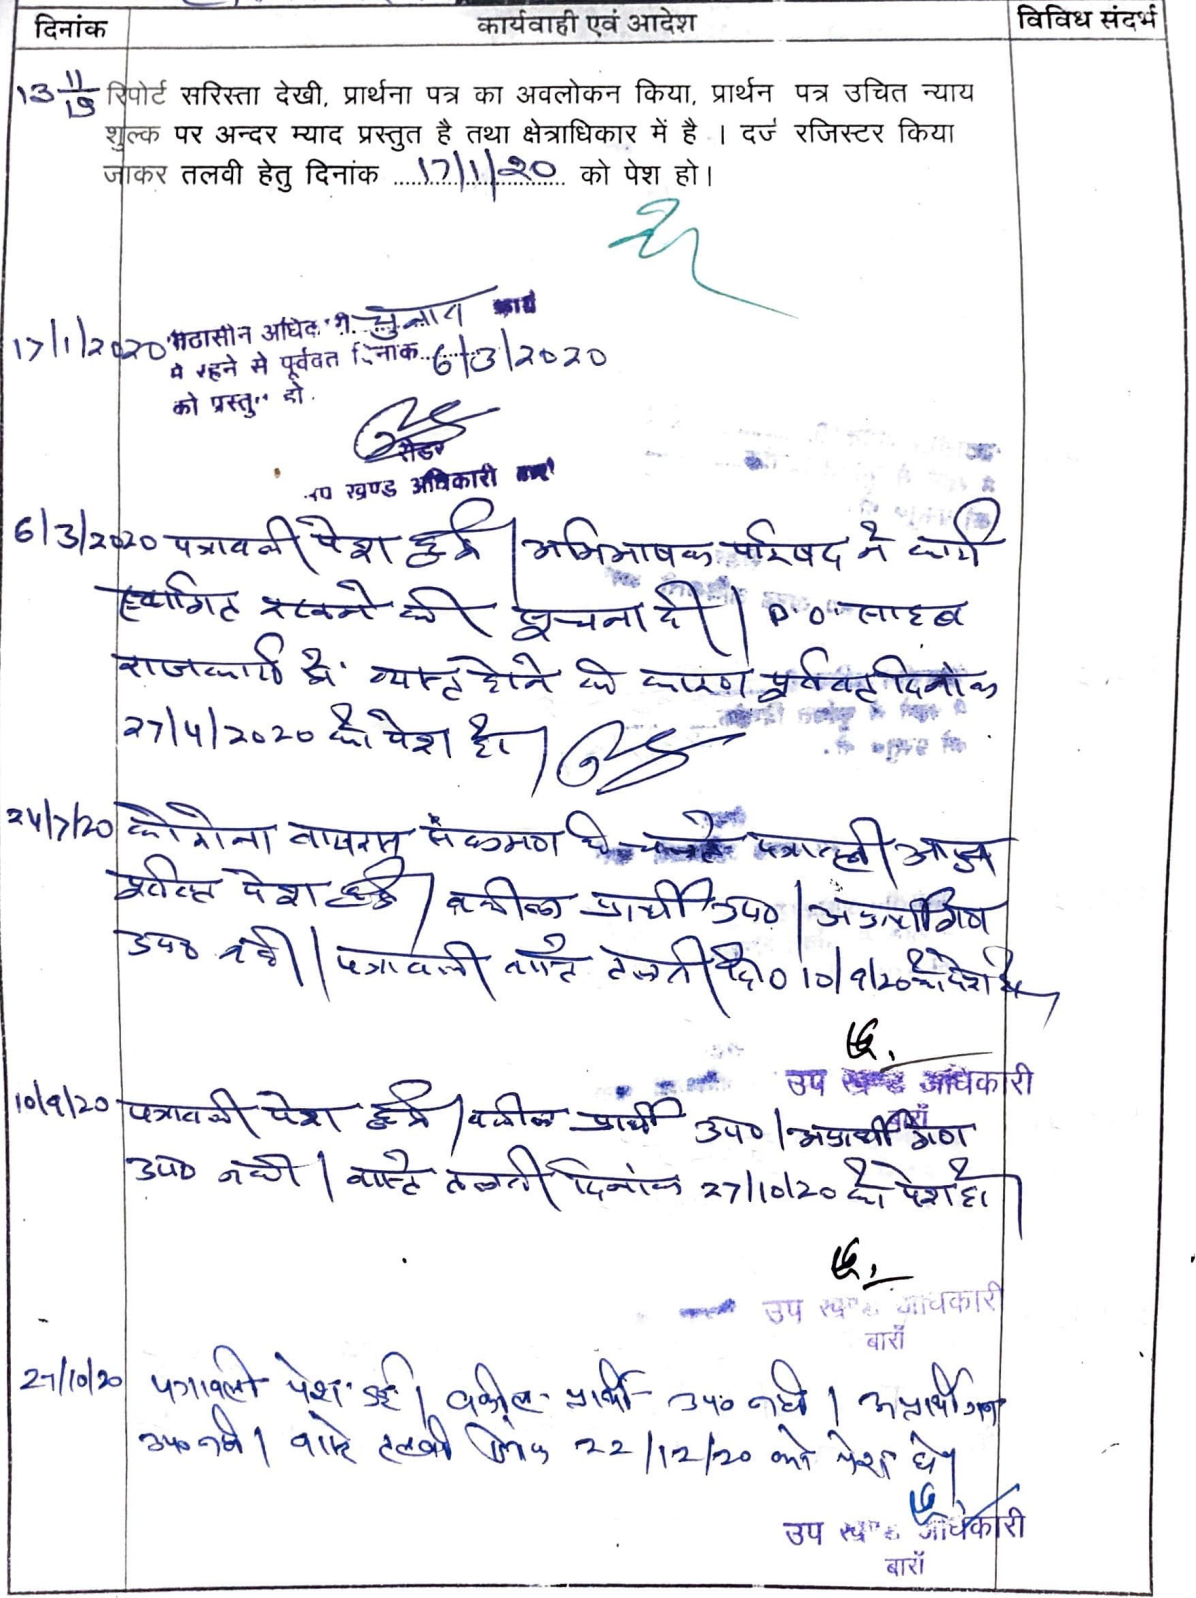 दिनांक कार्यवाही एवं आदेश विविध संदर्भ
13 11/19 रिपोर्ट सरिस्ता देखी, प्रार्थना पत्र का अवलोकन किया, प्रार्थन पत्र उचित न्याय
शुल्क पर अन्दर म्याद प्रस्तुत है तथा क्षेत्राधिकार में है । दर्ज रजिस्टर किया
जाकर तलवी हेतु दिनांक 17/1/20 को पेश हो।
17/1/2020 चुनाव कार्य
मे रहने से पूर्ववत दिनाक 6/3/2020
को प्रस्तु हो.
रीडर
उप खण्ड अधिकारी बारां
6/3/2020 पत्रावली पेश हुई | अभिभाषक परिषद ने कार्य
स्थगित रखने की सूचना दी | P.O. साहब
राजकार्य में व्यस्त होने के कारण पूर्ववत् दिनांक
27/4/2020 को पेश हो |
24/7/20 कोरोना वायरस संक्रमण के चलते पत्रावली आज
पेश हुई | वकील प्रार्थी उप० | अप्रार्थीगण
उप० नहीं | पत्रावली वास्ते तलवी दि० 10/9/20 को पेश हो
उप खण्ड अधिकारी
बाराँ
10/9/20 पत्रावली पेश हुई | वकील प्रार्थी उप० | अप्रार्थीगण
उप० नहीं | वास्ते तलवी दिनांक 27/10/20 को पेश हो |
उप खण्ड अधिकारी
बाराँ
27/10/20 पत्रावली पेश हुई | वकील प्रार्थी उप० नहीं | अप्रार्थीगण
उप० नहीं | वास्ते तलवी दिनांक 22/12/20 को पेश हो |
उप खण्ड अधिकारी
बाराँ